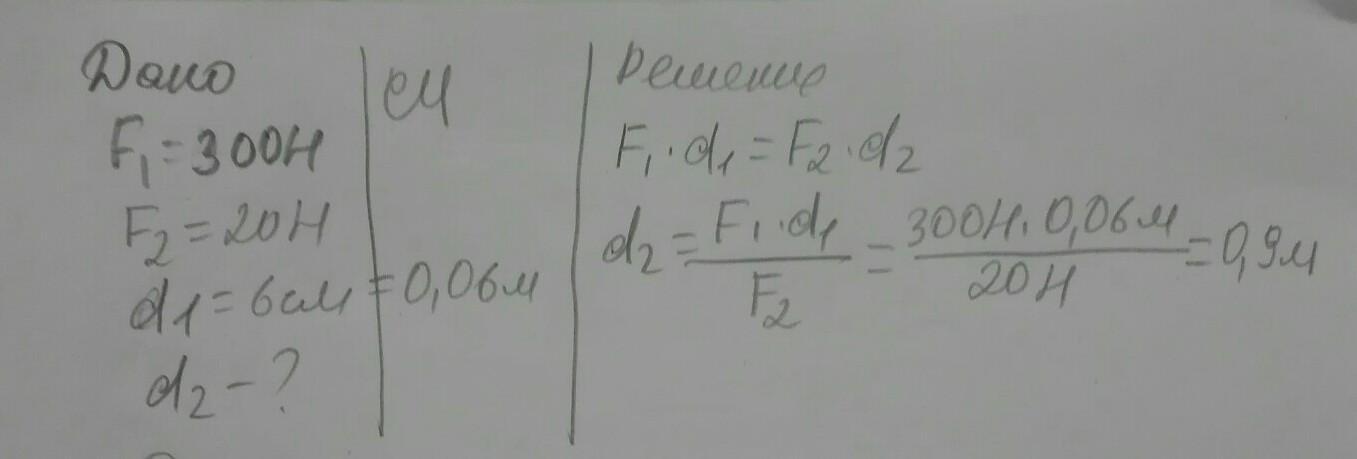 Дано
F₁=300Н
F₂=20Н
d1=6см
d2-?
СИ
=0,06м
Решение
F₁·d1=F₂·d2
d2=F₁·d1/F₂=300Н·0,06м/20Н=0,9м